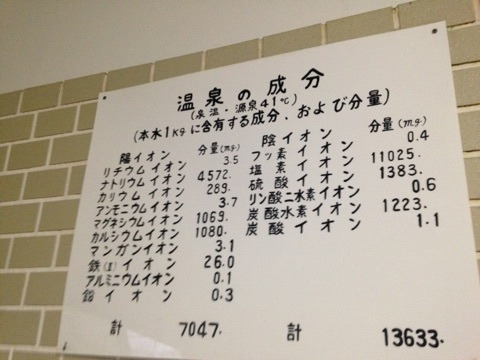 温泉の成分
(泉温・源泉41℃)
(本水1kgに含有する成分、および分量)
陽イオン 分量(mg)
リチウムイオン 3.5
ナトリウムイオン 4572.
カリウムイオン 289.
アンモニウムイオン 3.7
マグネシウムイオン 1069.
カルシウムイオン 1080.
マンガンイオン 3.1
鉄(Ⅱ)イオン 26.0
アルミニウムイオン 0.1
鉛イオン 0.3
計 7047.
陰イオン 分量(mg)
フッ素イオン 0.4
塩素イオン 11025.
硫酸イオン 1383.
リン酸二水素イオン 0.6
炭酸水素イオン 1223.
炭酸イオン 1.1
計 13633.